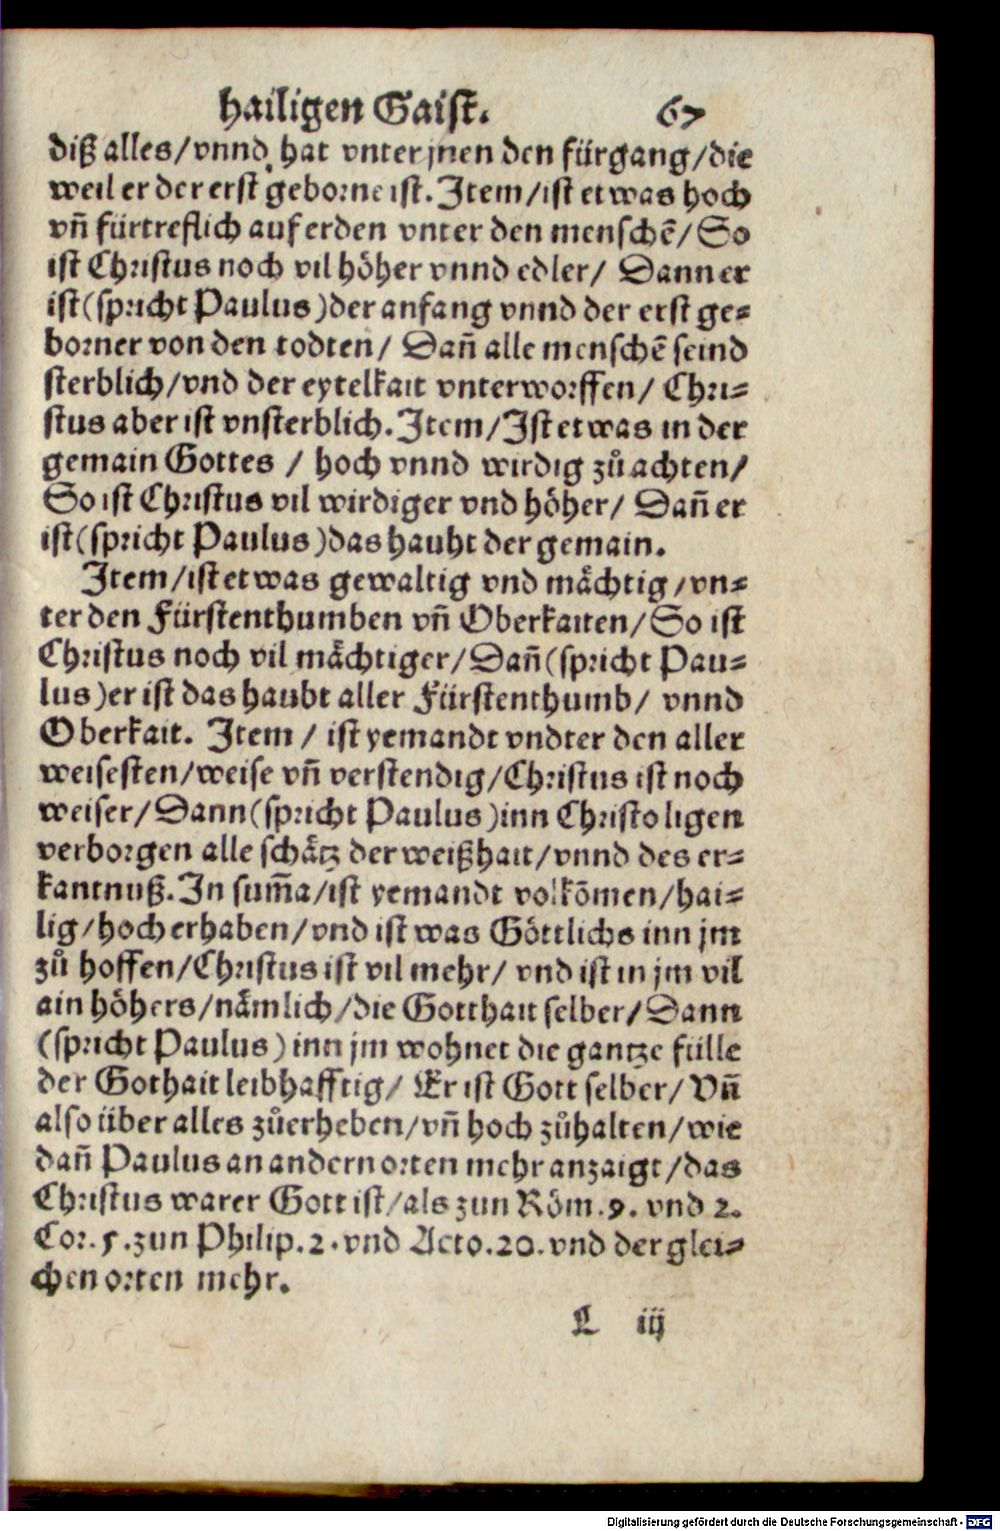 hailigen Gaist. 67
diß alles/vnnd hat vnter jnen den fürgang/die
weil er der erst geborne ist. Item/ist etwas hoch
vñ fürtreflich auf erden vnter den menschẽ/So
ist Christus noch vil höher vnnd edler/ Dann er
ist(spricht Paulus)der anfang vnnd der erst ge-
borner von den todten/ Dañ alle menschẽ seind
sterblich/vnd der eytelkait vnterworffen/ Chri-
stus aber ist vnsterblich. Item/Ist etwas in der
gemain Gottes / hoch vnnd wirdig zů achten/
So ist Christus vil wirdiger vnd höher/ Dañ er
ist(spricht Paulus)das hauht der gemain.
Item/ist etwas gewaltig vnd mächtig/vn-
ter den Fürstenthumben vñ Oberkaiten/So ist
Christus noch vil mächtiger/Dañ(spricht Pau-
lus)er ist das haubt aller Fürstenthumb/ vnnd
Oberkait. Item / ist yemandt vndter den aller
weisesten/weise vñ verstendig/Christus ist noch
weiser/Dann(spricht Paulus)inn Christo ligen
verborgen alle schätz der weißhait/vnnd des er-
kantnuß. In sum̃a/ist yemandt volkõmen/hai-
lig/hoch erhaben/vnd ist was Göttlichs inn jm
zů hoffen/Christus ist vil mehr/ vnd ist in jm vil
ain höhers/nämlich/die Gotthait selber/Dann
(spricht Paulus) inn jm wohnet die gantze fülle
der Gothait leibhafftig/ Er ist Gott selber/ Vñ
also über alles zůerheben/vñ hoch zůhalten/wie
dañ Paulus an andern orten mehr anzaigt/das
Christus warer Gott ist/als zun Röm. 9. vnd 2.
Cor. 5. zun Philip. 2. vnd Acto. 20. vnd der glei-
chen orten mehr.
L iij
Digitalisierung gefördert durch die Deutsche Forschungsgemeinschaft - DFG